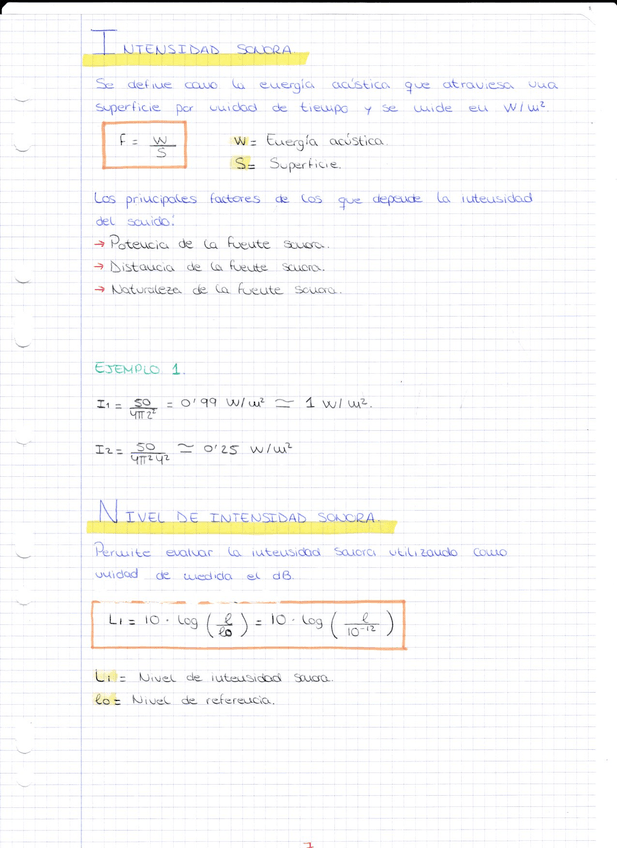 INTENSIDAD SONORA.
Se define como la energía acústica que atraviesa una
superficie por unidad de tiempo y se mide en W/m².
F = W/S W = Energía acústica.
S = Superficie.
Los principales factores de los que depende la intensidad
del sonido:
→ Potencia de la fuente sonora.
→ Distancia de la fuente sonora.
→ Naturaleza de la fuente sonora.
EJEMPLO 1.
I1 = 50/4π2² = 0'99 W/m² ≃ 1 W/m².
I2 = 50/4π²4² ≃ 0'25 W/m²
NIVEL DE INTENSIDAD SONORA.
Permite evaluar la intensidad sonora utilizando como
unidad de medida el dB.
Li = 10 · log (l/lo) = 10 · log (l/10⁻¹²)
Li = Nivel de intensidad sonora.
lo = Nivel de referencia.